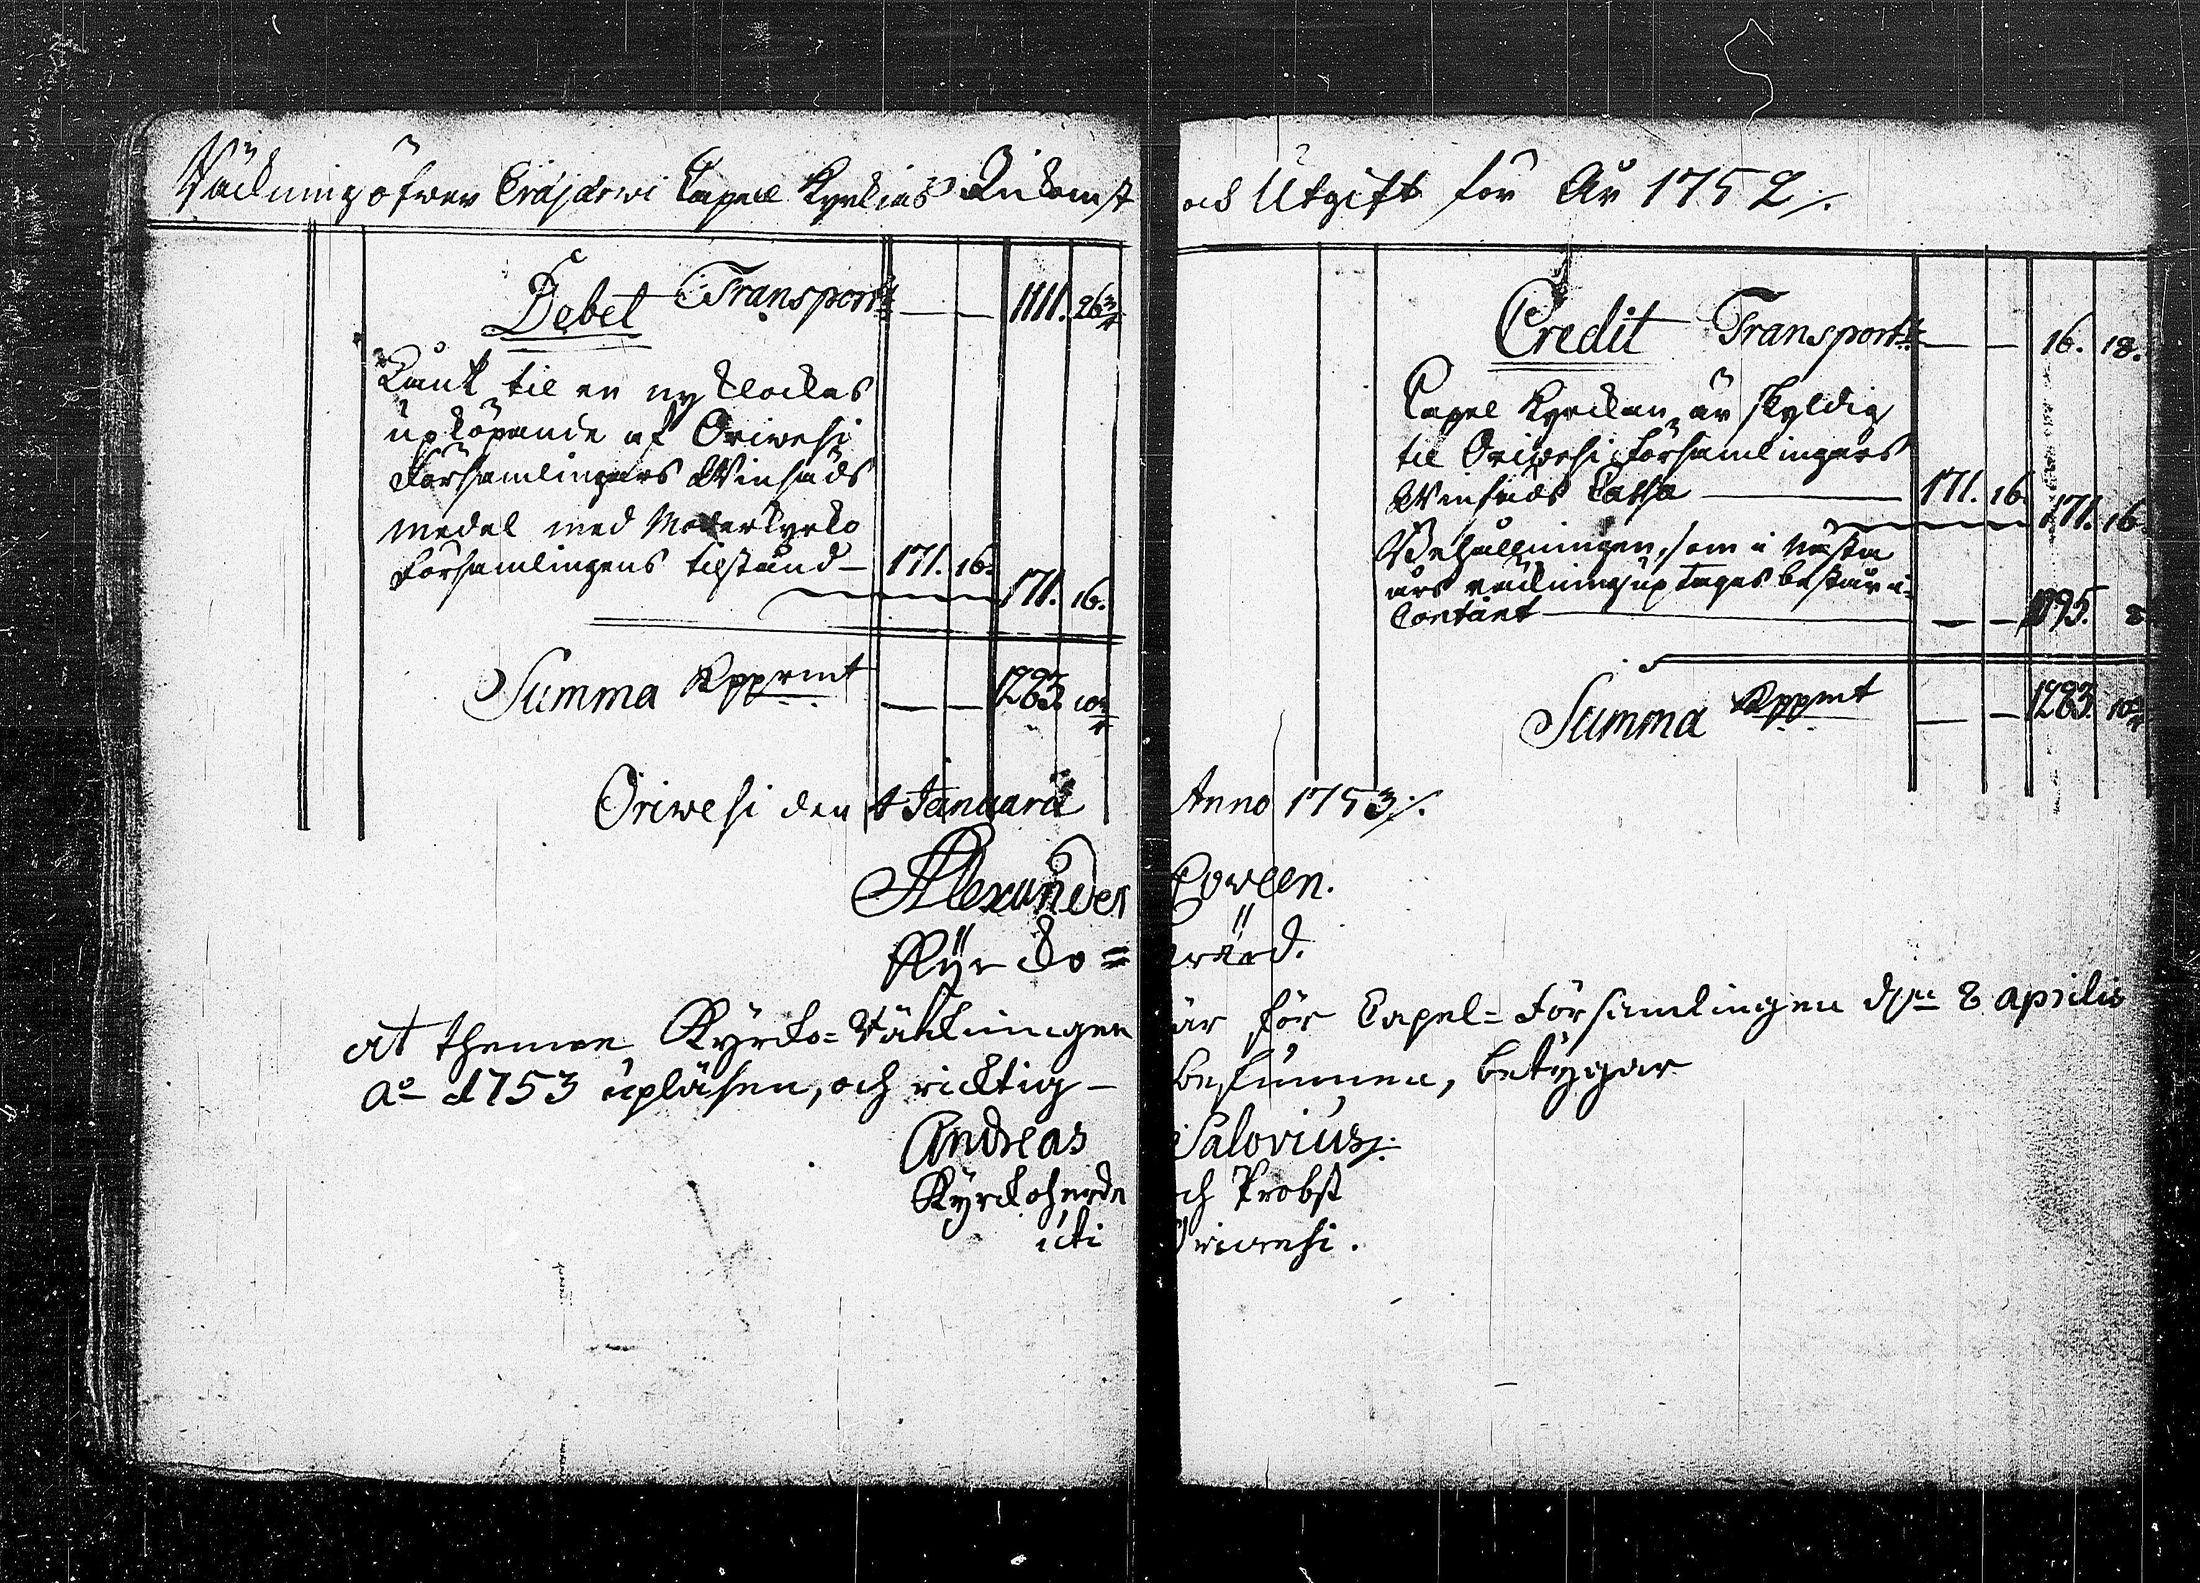 Räckning öfwer Eräjärwi Capell Kyrkias Inkomst och Utgift för År 1752 ⁒
Debet Transport — — 1111. 26¾
Lånt til en ny Klockas
upköpande af Oriwesi
Församlingars Winsäds
medel med Moderkyrko
Församlingens tilstånd — 171. 16.
171. 16.
Summa Kopprmt — — 1283. 10¾
Credit Transport — — 16. 18.
Capel Kyrckan är skyldig
til Oriwesi församlingars
Winsäds Cassa — 171. 16. 171. 16
Behållningen, som i nästa
års räckning uptages består i
Contant — — — 1095. 8
Summa Kopprmt — — 1283. 10¾
Oriwesi den 1 Januarii Anno 1753 ⁒
Alexander Coreen.
Kyrcko = wärd.
At thenne Kyrcko-Räkningen är för Capel-Församlingen d. 8 aprilis
Ao 1753 upläsen, och ricktig befunnen, betygar
Andreas Salovius ⁒
Kyrckoherde och Probst
uti Oriwesi.